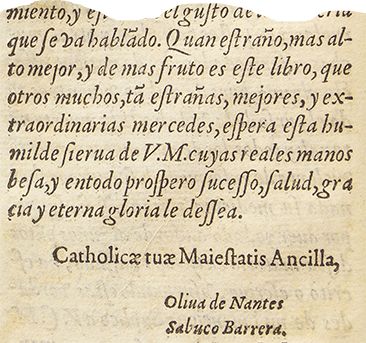 miento, y es el gusto de
que se va hablãdo. Quan estraño, mas al-
to mejor, y de mas fruto es este libro, que
otros muchos, tã estrañas, mejores, y ex-
traordinarias mercedes, espera esta hu-
milde sierua de V.M. cuyas reales manos
besa, y en todo prospero sucesso, salud, gra
cia y eterna gloria le dessea.
Catholicæ tuæ Maiestatis Ancilla,
Oliua de Nantes
Sabuco Barrera.